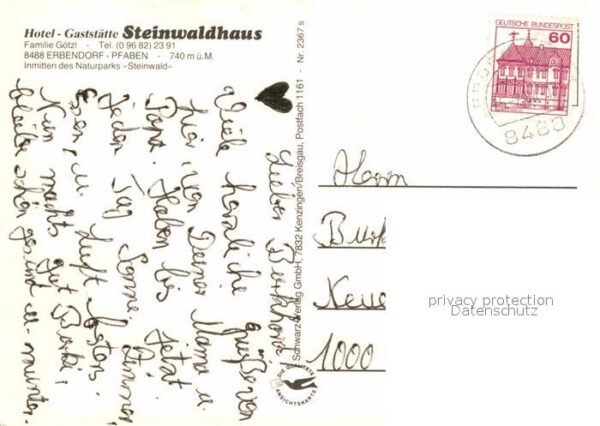 Hotel - Gaststätte Steinwaldhaus
Familie Götzl - Tel. (0 96 82) 23 91
8488 ERBENDORF - PFABEN - 740 m ü.M.
Inmitten des Naturparks »Steinwald«
Lieber Burkhard
Viele herzliche Grüße von
hier von Deiner Mama u.
Papa. Haben bis jetzt
jeden Tag Sonne. Zimmer,
Essen, u. Luft bestens.
Nun machs gut Burki,
bleibe schön gesund u. munter.
Schwarzwald Verlag GmbH, 7832 Kenzingen/Breisgau, Postfach 1161 - Nr. 2367 s
DIE QUALITÄTS
ANSICHTSKARTE
DEUTSCHE BUNDESPOST
60
8488
Herrn
Burk
Neue
1000
privacy protection
Datenschutz